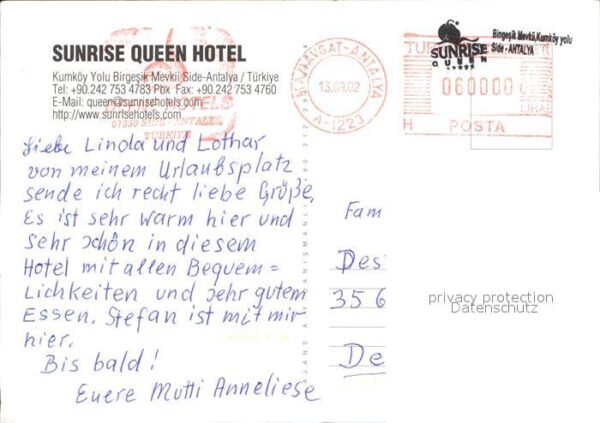 SUNRISE QUEEN HOTEL
Kumköy Yolu Birgeşik Mevkii Side-Antalya / Türkiye
Tel: +90.242 753 4783 Pbx Fax: +90.242 753 4760
E-Mail: queen@sunrisehotels.com
http://www.sunrisehotels.com
07330 SIDE - ANTALYA
TÜRKIYE
MANAVGAT-ANTALYA
13.09.02
A-1223
Bingeşik Mevkii, Kumköy yolu
Side - ANTALYA
SUNRISE
QUEEN
060000
LIRA
H POSTA
Liebe Linda und Lothar
von meinem Urlaubsplatz
sende ich recht liebe Grüße.
Es ist sehr warm hier und
sehr schön in diesem
Hotel mit allen Bequem=
Lichkeiten und sehr gutem
Essen. Stefan ist mit mir
hier.
Bis bald!
Euere Mutti Anneliese
Fam
Des
35 6
De
privacy protection
Datenschutz